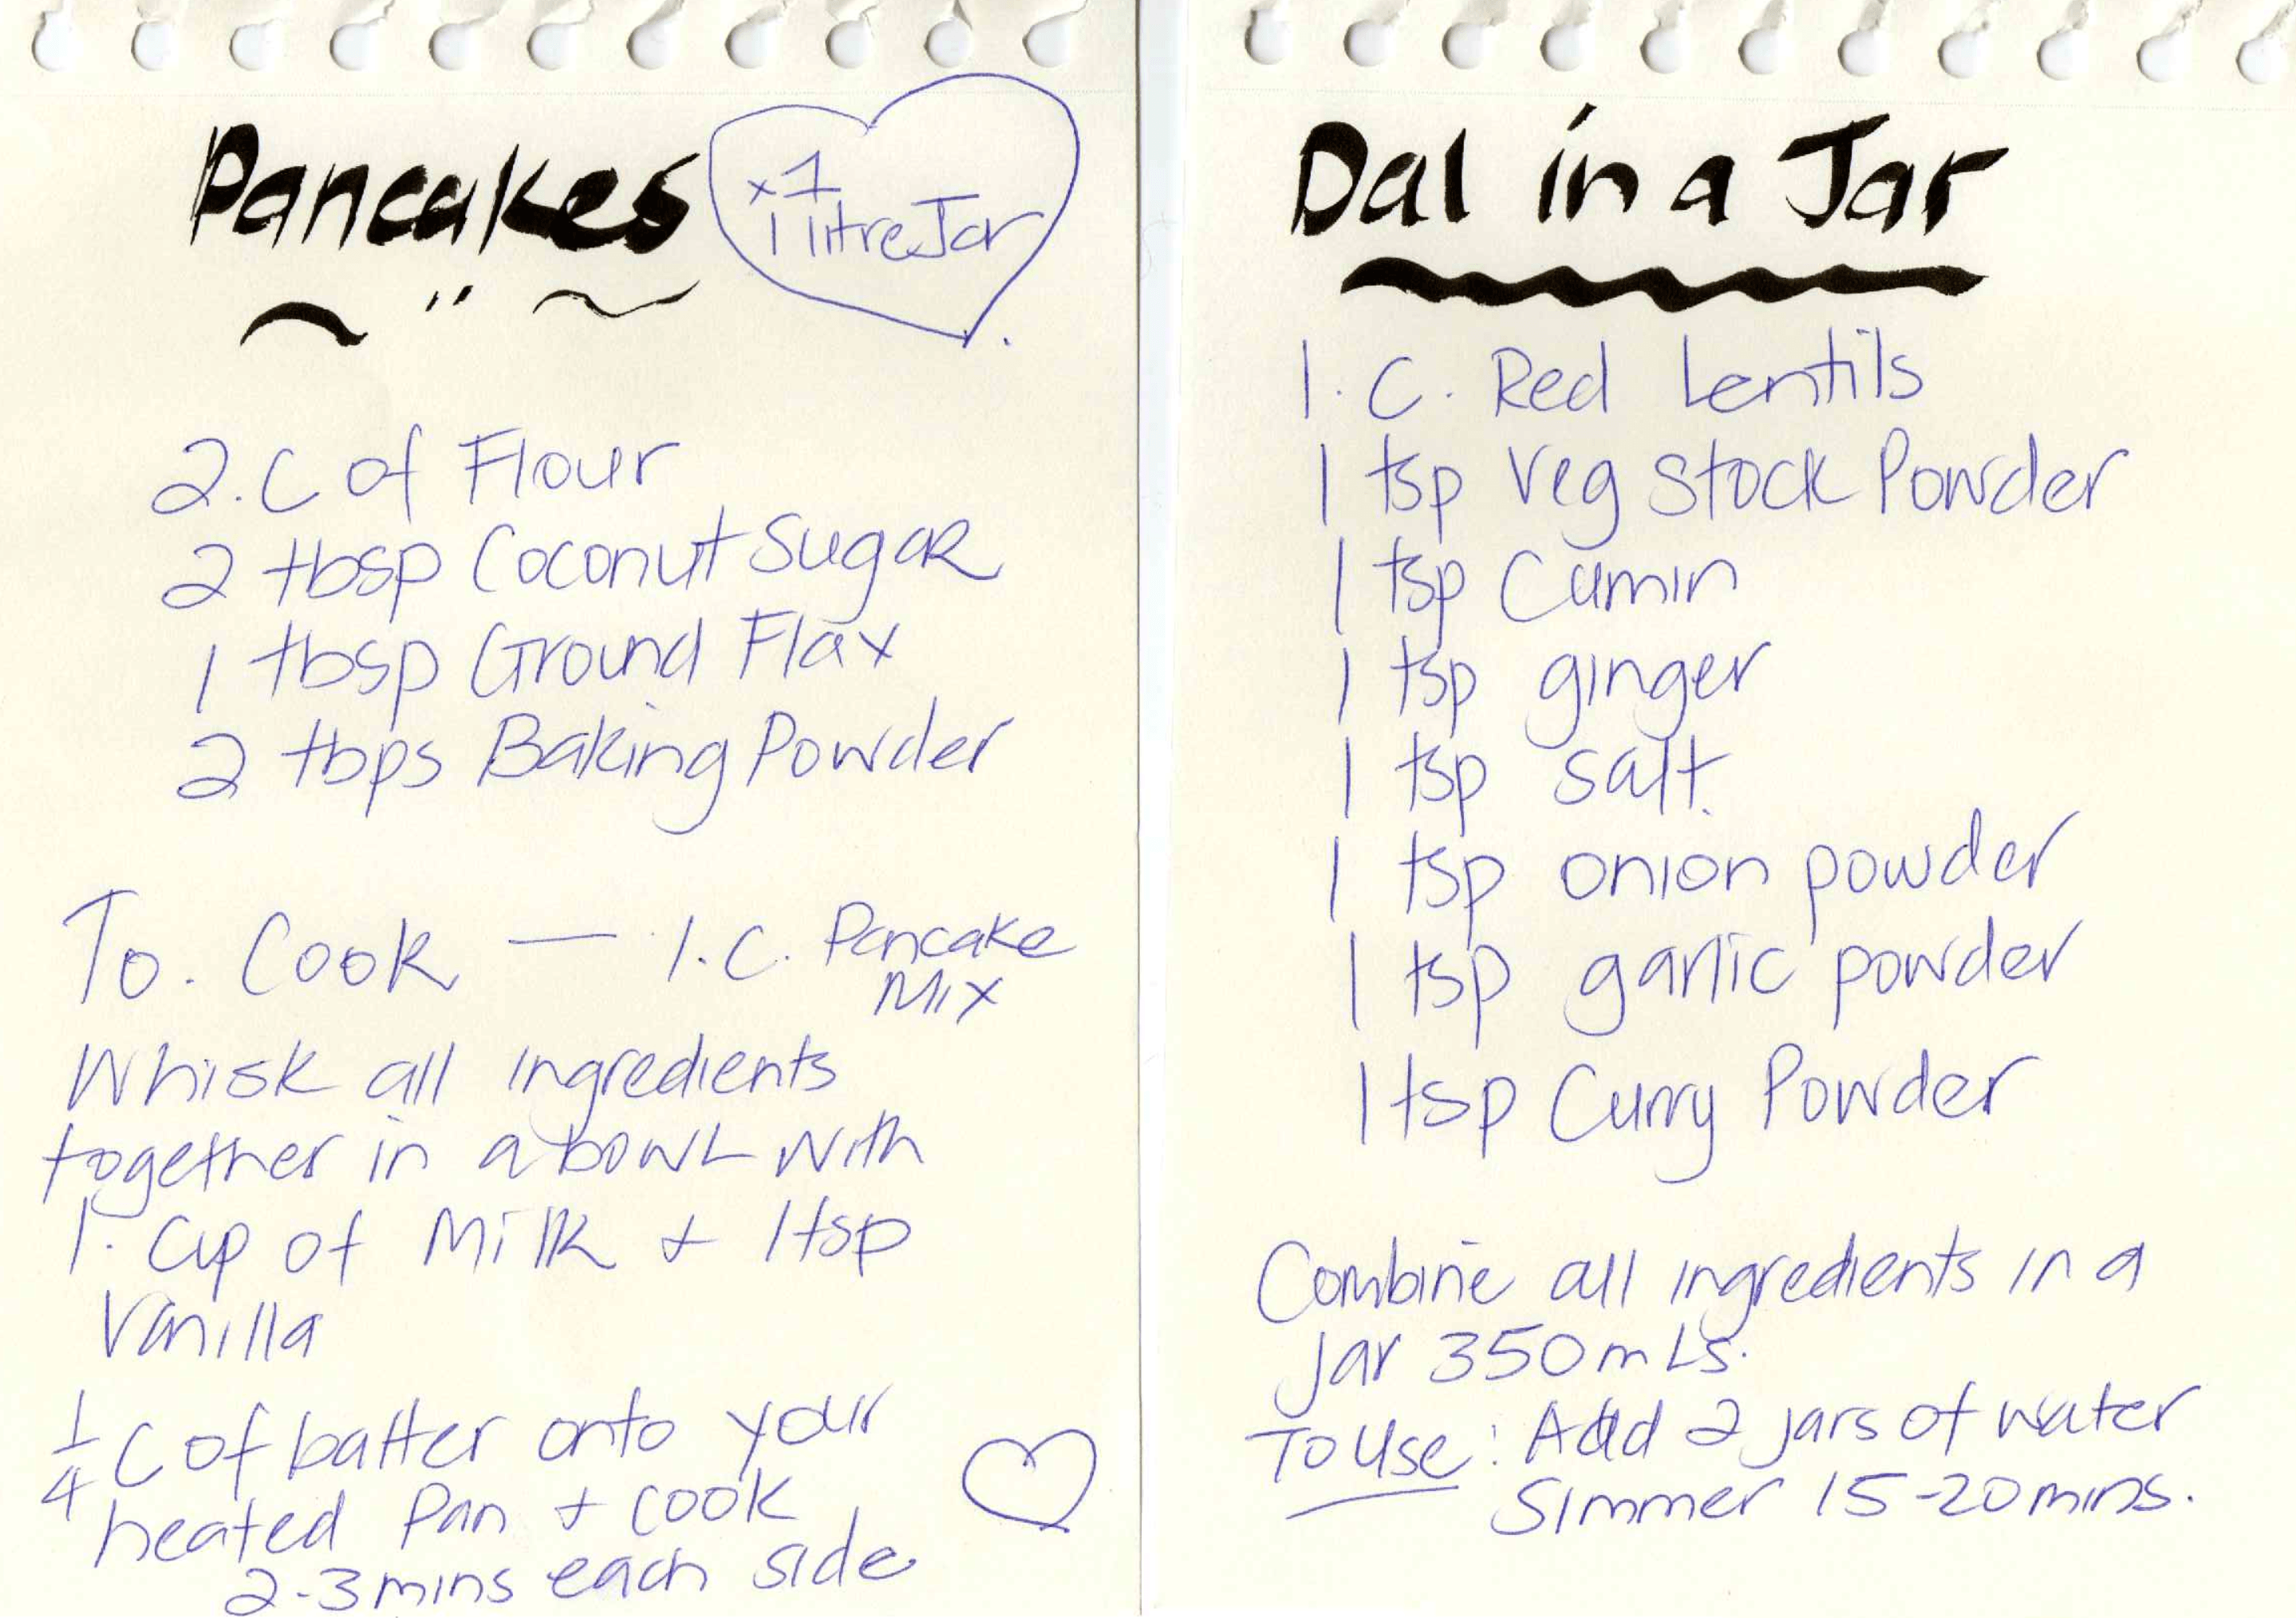 Pancakes
x1
1 litre Jar
2. C of Flour
2 tbsp Coconut Sugar
1 tbsp Ground Flax
2 tbps Baking Powder
To. Cook — 1. C. Pancake
Mix
Whisk all ingredients
together in a bowl with
1. Cup of Milk + 1 tsp
Vanilla
1/4 C of batter onto your
heated Pan + cook
2-3 mins each side
Dal in a Jar
1. C. Red Lentils
1 tsp Veg Stock Powder
1 tsp Cumin
1 tsp ginger
1 tsp salt
1 tsp onion powder
1 tsp garlic powder
1 tsp Curry Powder
Combine all ingredients in a
jar 350mLs.
To Use: Add 2 jars of water
Simmer 15-20 mins.